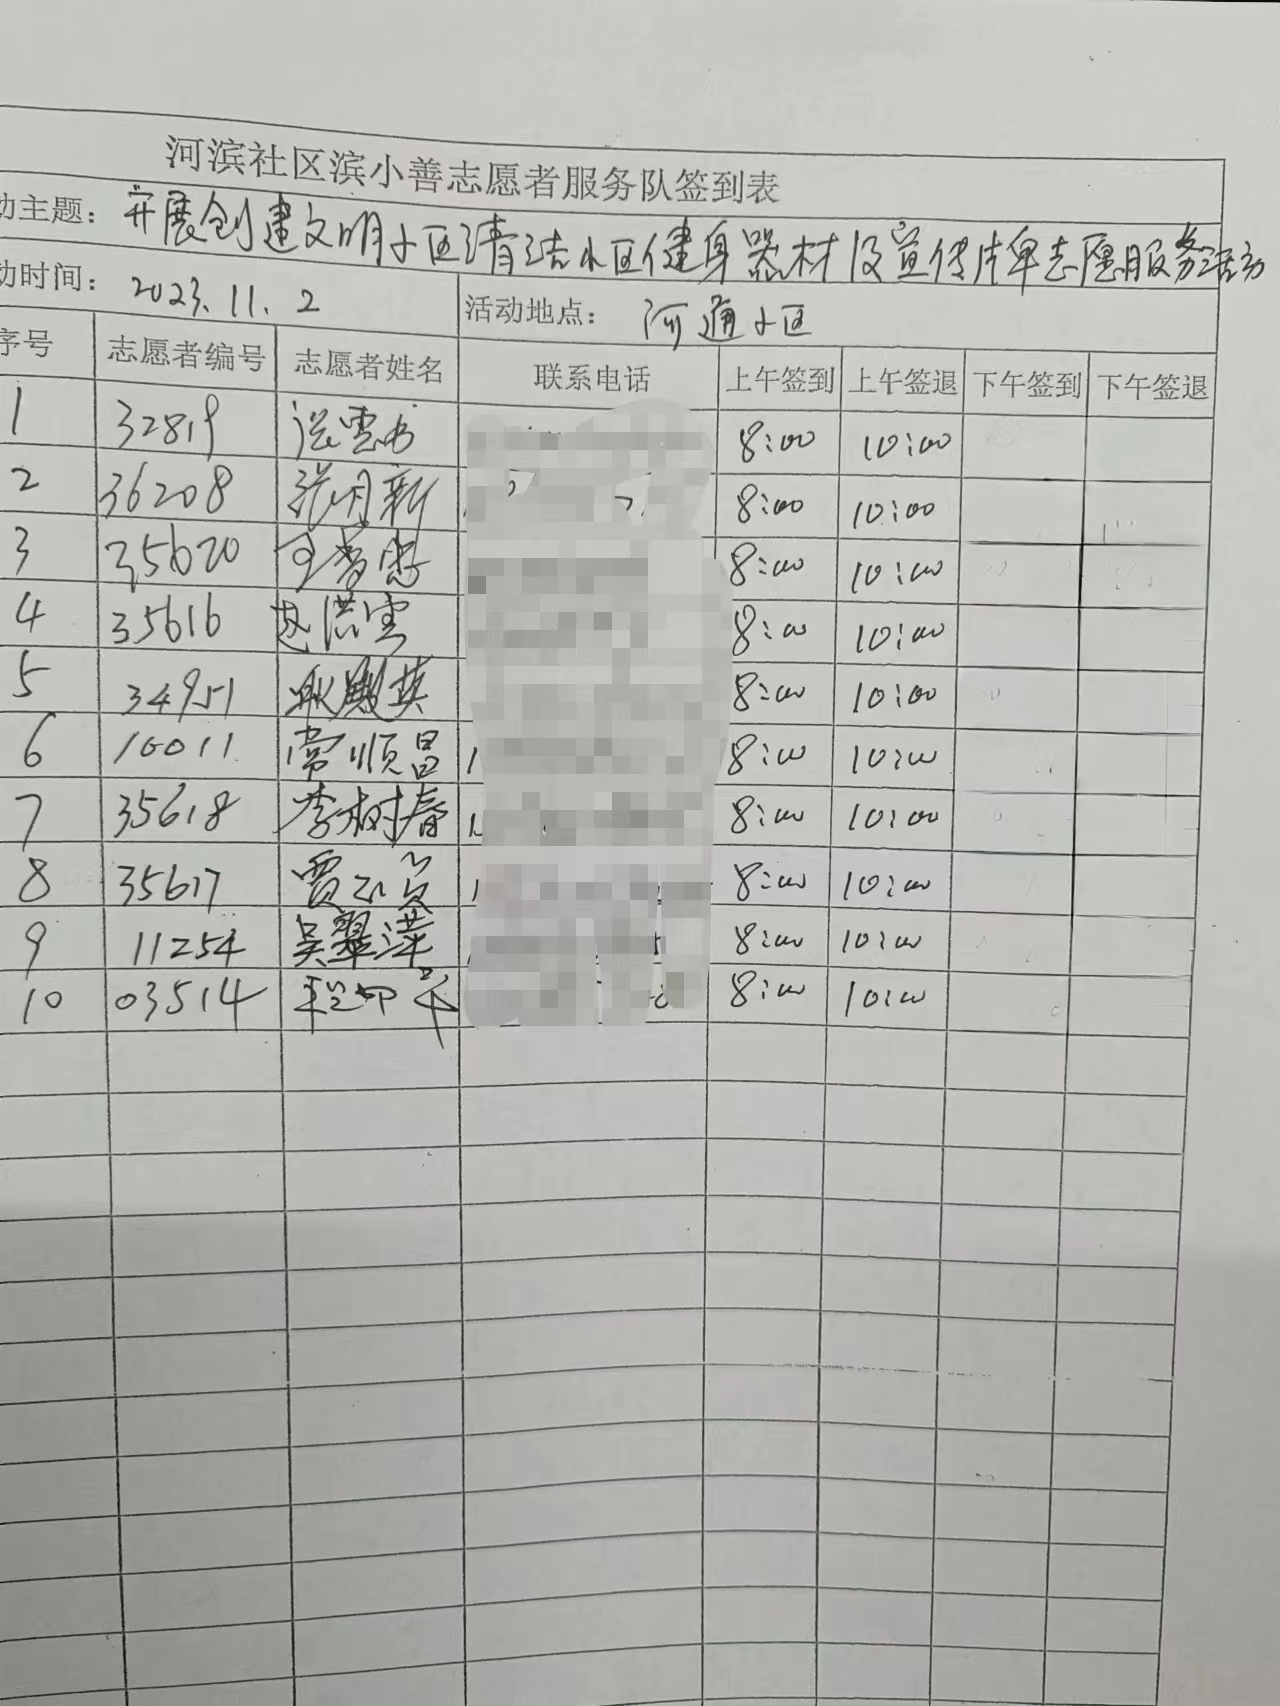 河滨社区滨小善志愿者服务队签到表
动主题：开展创建文明小区清洁小区健身器材及宣传片单志愿服务活动
动时间：2023.11.2 活动地点：河通小区
序号 志愿者编号 志愿者姓名 联系电话 上午签到 上午签退 下午签到 下午签退
1 32819 8:00 10:00
2 36208 张月新 8:00 10:00
3 35620 8:00 10:00
4 35616 赵洪雲 8:00 10:00
5 34951 耿殿英 8:00 10:00
6 10011 常顺昌 8:00 10:00
7 35618 李树春 8:00 10:00
8 35617 贾 8:00 10:00
9 11254 吴翠萍 8:00 10:00
10 03514 程 8:00 10:00